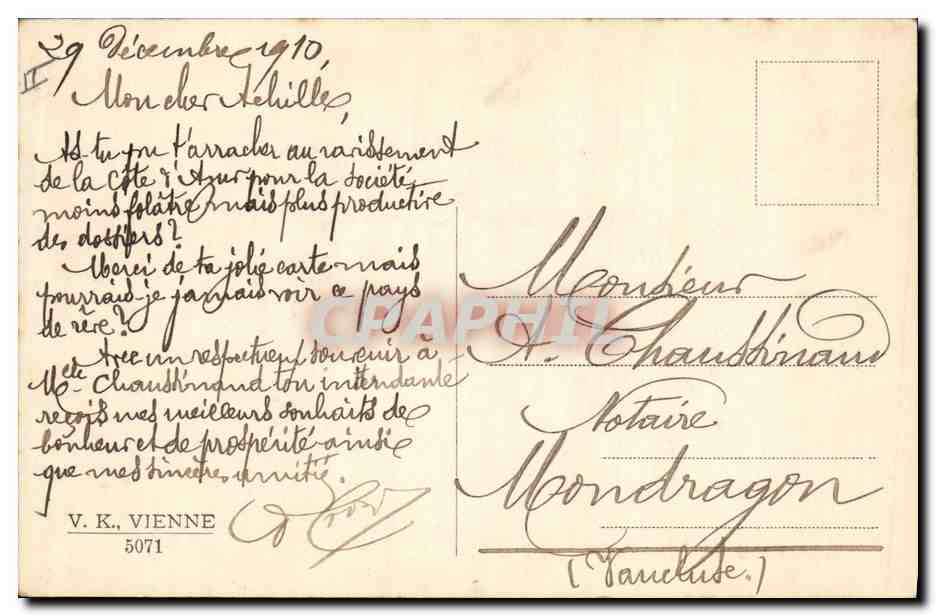 29 Décembre 1910,
Mon cher Achille,
As-tu pu t'arracher au ravissement
de la Côte d'Azur pour la société
moins folâtre mais plus productive
des dossiers?
Merci de ta jolie carte mais
pourrais-je jamais voir ce pays
de rêve?
Avec un respectueux souvenir à
Melle Chaussinand ton intendante
reçois mes meilleurs souhaits de
bonheur et de prospérité ainsi
que mes sincères amitiés.
V. K., VIENNE
5071
Monsieur
A. Chaussinand
Notaire
Mondragon
(Vaucluse.)
CPAPHIL